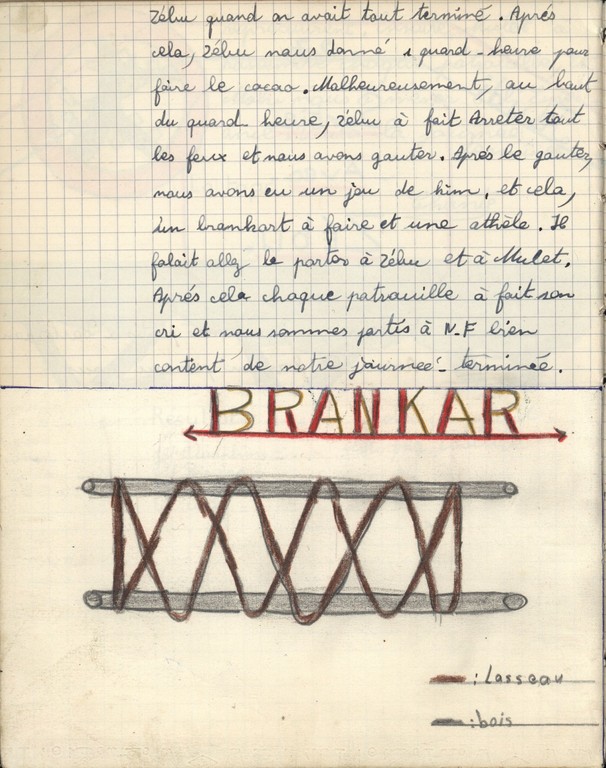 Zébu quand on avait tout terminé. Aprés
cela, Zébu nous donné 1 quard-heure pour
faire le cacao. Malheureusement, au baut
du quard heure, Zébu à fait Arreter tout
les feux et nous avons gauter. Aprés le gauter,
nous avons eu un jeu de kim, et cela,
un brankart à faire et une athèle. Il
falait allez le porter à Zébu et à Mulet.
Aprés cela chaque patrouille à fait son
cri et nous sommes partis à N.F bien
content de notre journeé terminée.
BRANKAR
: Lasseau
: bois